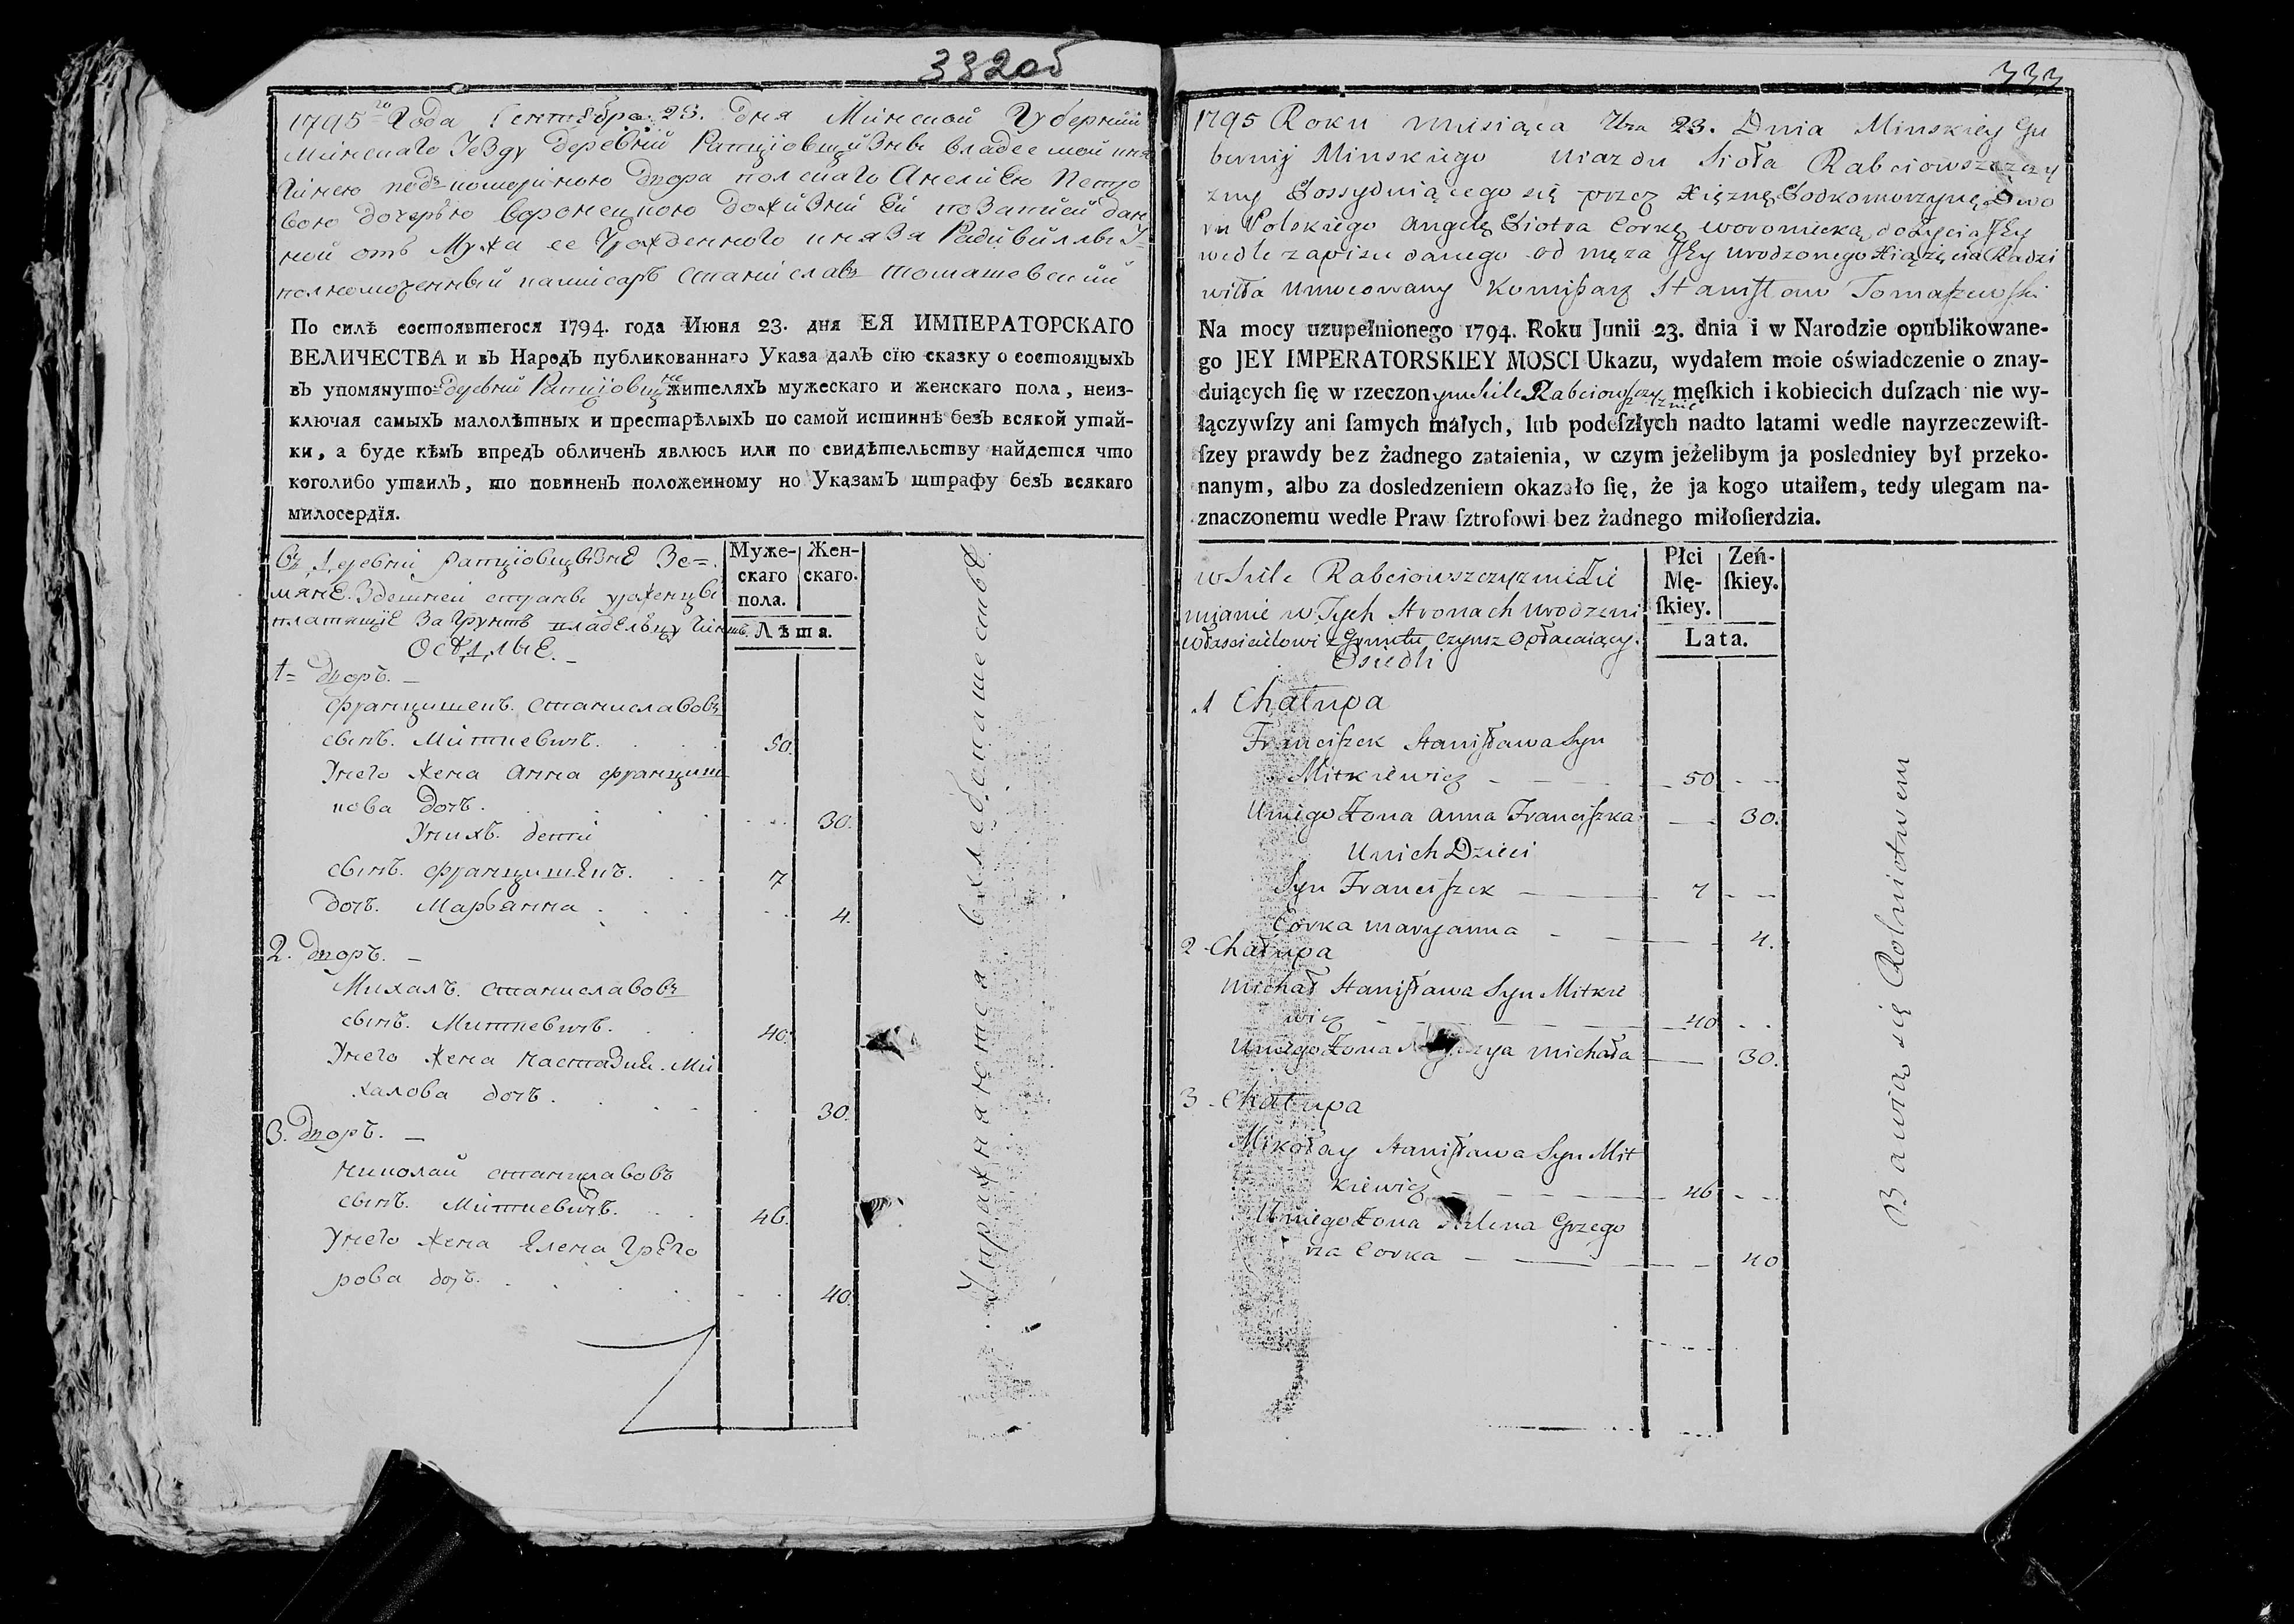 332об
1795го Года Сентября 23. дня Минской Губернии
Минскаго Уезду деревни Рапцiовщизны владеемой кня
гинею подъкоморiною двора полскаго Анелiею Петро
вою дочерью Воронецкою дожiвзнiй Ей позапiсi дан
ной отъ Мужа ее Урожденного князя Радивилла У=
полномоченный комисаръ Станiславъ Томашевскiй
По силѣ состоявшегося 1794. года Июня 23. дня ЕЯ ИМПЕРАТОРСКАГО
ВЕЛИЧЕСТВА и въ Народъ публикованнаго Указа далъ сїю сказку о состоящыхъ
въ упомянуто= деревни Рапцiовщизне жителяхъ мужескаго и женскаго пола, неиз-
ключая самыхъ малолѣтныхъ и престарѣлыхъ по самой истиннѣ безъ всякой утай-
ки, а буде кѣмъ впредь обличенъ явлюсь или по свидѣтельству найдется что
коголибо утаилъ, то повиненъ положенному по Указамъ штрафу безъ всякаго
милосердїя.
Муже-скаго пола. Жен-скаго.
Лѣта.
Въ Деревнi рапцiовщизнЕ Зе=
мянЕ Здешней страны урженцы
платящiЕ За Грунтъ владельцу Чiншъ
ОсѢДлыЕ.
1= Дворъ.
Францишекъ. Станиславовъ
сынъ. Миткевичъ. 50.
Унего жена Анна Францишк
кова дочъ. 30.
Унихъ. дети
сынъ. Францишекъ. 7
дочъ. Марьянна 4.
2. Дворъ.
Михалъ. Станиславовъ
сынъ. Миткевичъ. 40.
Унего жена Настазия. Ми
халова дочъ. 30.
3. Дворъ.
Николай Станиславовъ
сынъ. Миткевичъ. 46.
Унего жена Елена Грего
рова дочъ. 40.
Упражняются вхлебопашествѢ.
333
1795 Roku miesiąca 7bra 23. Dnia Minskiey Gu
bernij Minskiego Uiazdu Sioła Rabciowszczy
zny Possyduiącego się przez Xiężnę Podkomorzynę Dwo
ru Polskiego Angelę Piotra Corkę Woroniecką dożycia Jey
wedle zapisu danego od męża Jey Urodzonego Xiążęcia Radzi
wiłła Umocowany Komisarz Stanisław Tomaszewski
Na mocy uzupełnionego 1794. Roku Junii 23. dnia i w Narodzie opublikowane-
go JEY IMPERATORSKIEY MOSCI Ukazu, wydałem moie oświadczenie o znay-
duiących ſię w rzeczonym Siele Rabciowszczyznie męſkich i kobiecich duſzach nie wy-
łączywſzy ani ſamych małych, lub podeſzłych nadto latami wedle nayrzeczewiſt-
ſzey prawdy bez żadnego zataienia, w czym jeżelibym ja posledniey był przeko-
nanym, albo za dosledzeniem okazało ſię, że ja kogo utaiłem, tedy ulegam na-
znaczonemu wedle Praw ſztrofowi bez żadnego miłoſierdzia.
Płci Mę-ſkiey. Zeń-ſkiey.
Lata.
w Siele Rabciowszczyznie Zie
mianie w Tych Stronach Urodzeni
włascicielowi z Gruntu Czynsz Opłacaiący.
Osiedli
1 Chałupa
Franciszek Stanisława Syn
Mitkiewicz 50
Uniego Żona Anna Franciszka 30.
Unich Dzieci
Syn Franciszek 7
Corka Maryanna 4.
2 Chałupa
Michał Stanisława Syn Mitkie
wicz 40
Uniego Żona Michała 30.
3 Chałupa
Mikołay Stanisława Syn Mit
kiewicz 46
Uniego Żona Helena Grzego
rza Corka 40
Bawią się Rolnictwem